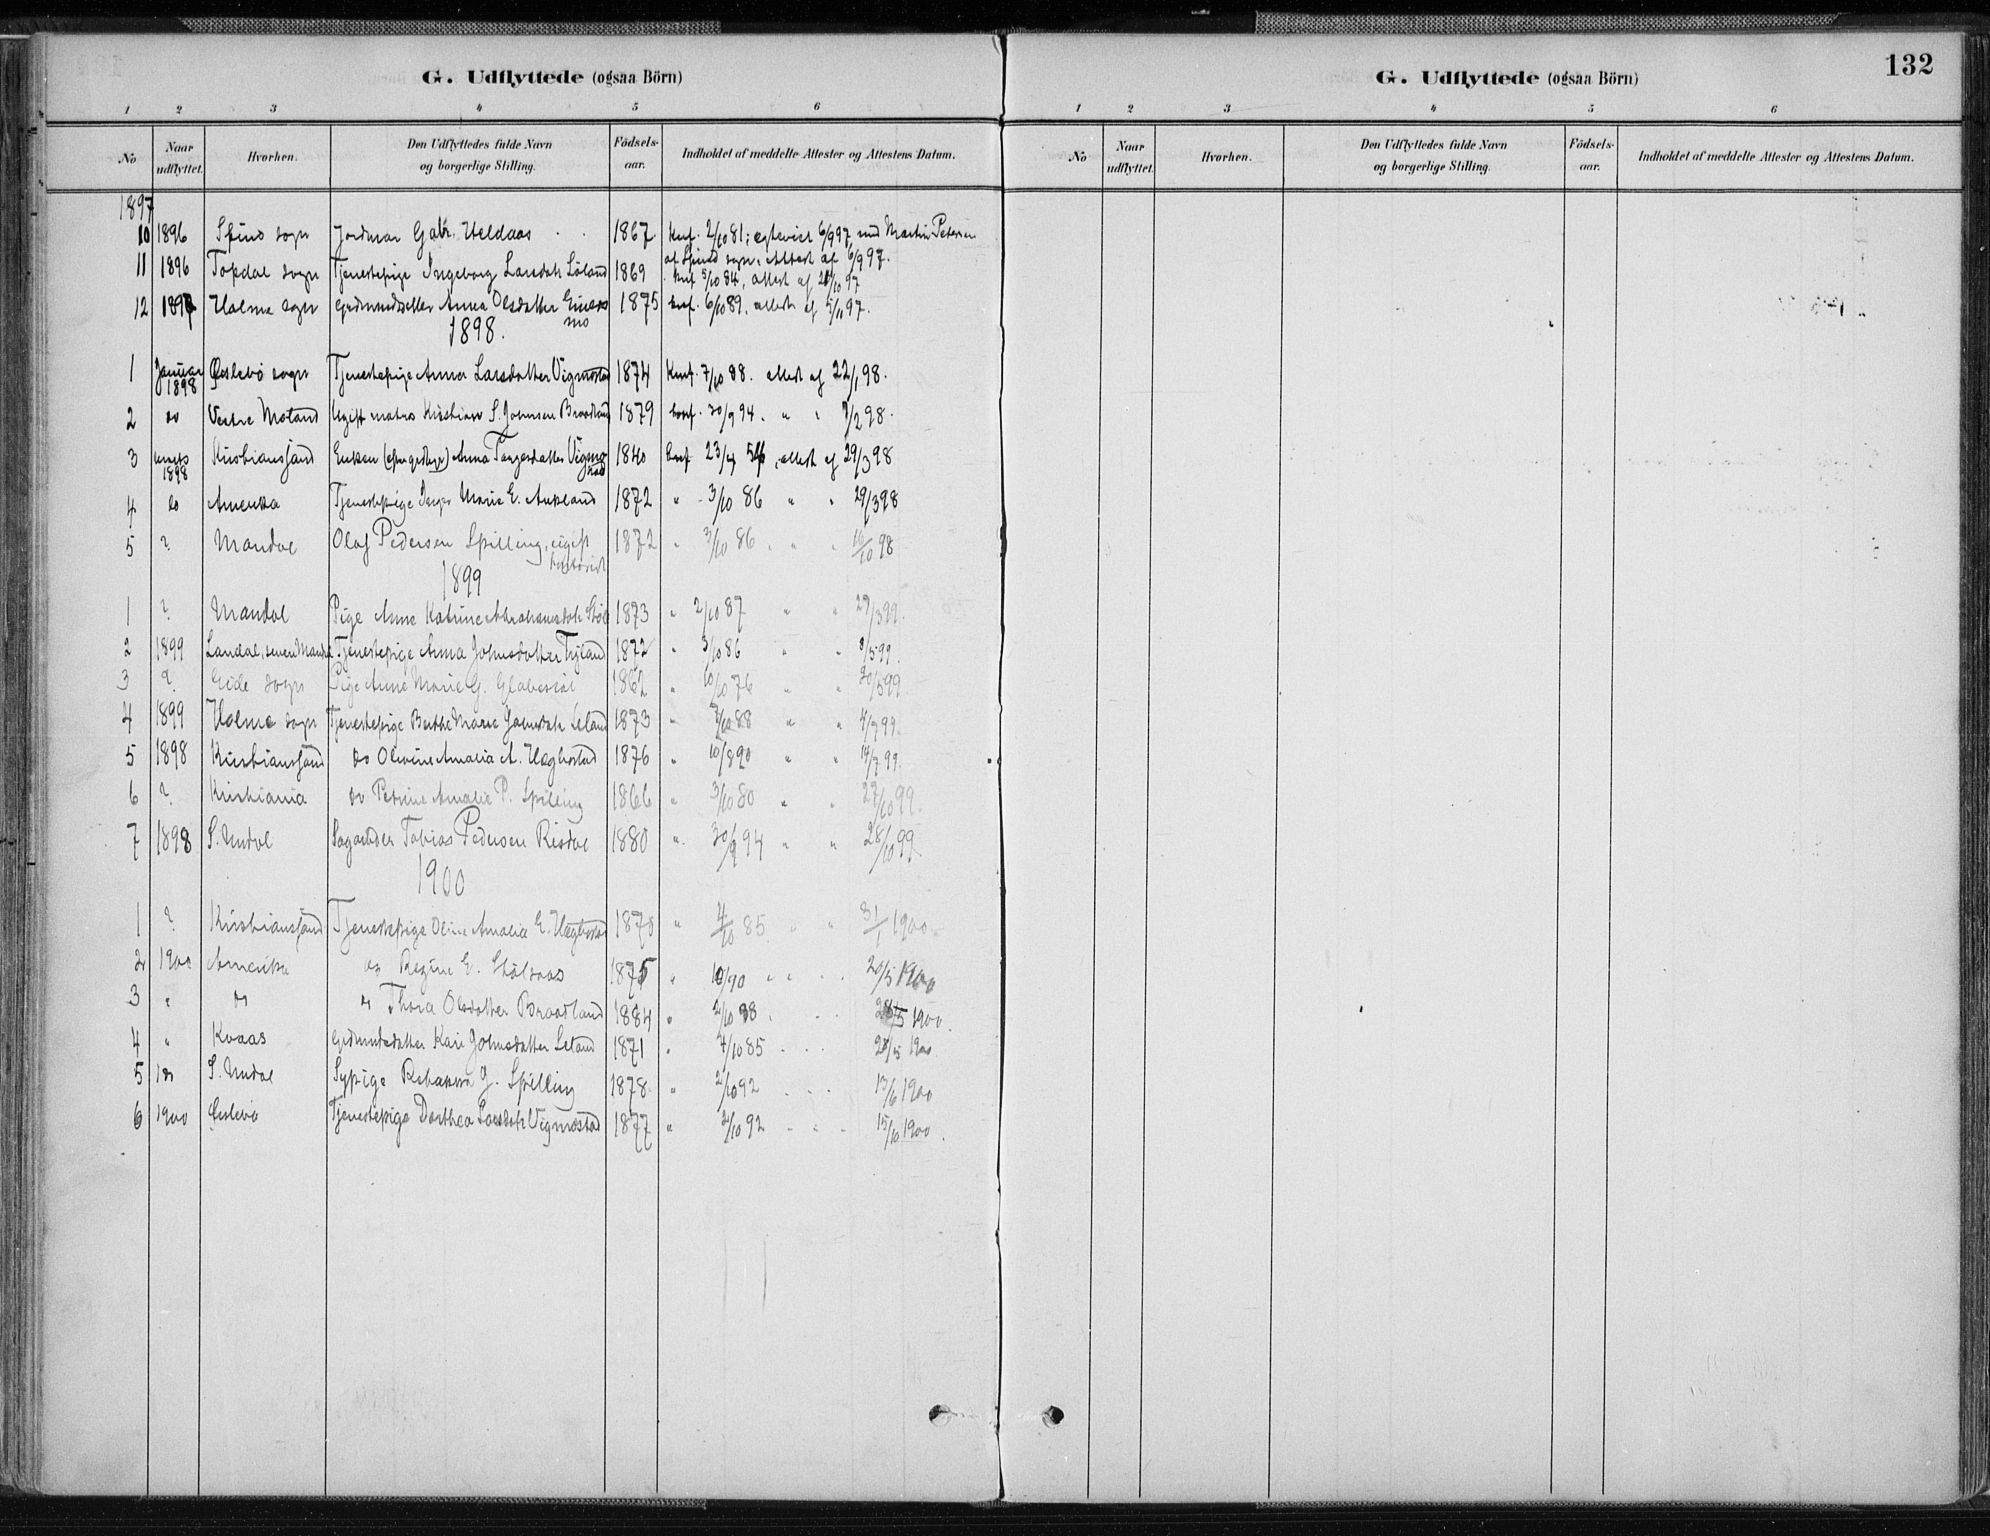 G. Udflyttede (ogsaa Börn)
1 2 3 4 5 6
No Naar udflyttet. Hvorhen. Den Udflyttedes fulde Navn og borgerlige Stilling. Födsels-aar. Indholdet af meddelte Attester og Attestens Datum.
1897
10 1896 Spind sogn Jordmor Gabr. Heldaas 1867 Knf. 2/10 81; egteviet 6/9 97 med Martin Petersen
af Spind sogn, attest af 6/9 97.
11 1896 Topdal sogn Tjenestepige Ingeborg Larsdatr 1869 knf 5/10 84, attest af
12 189 Halme sogn Grdmandsdatter Anna Olsdatter 1875 knf. 6/10 89. attest af 5/11 97.
mo
1898.
1 Januar 1898 Öislebö sogn Tjenestepige Anna Larsdatter Vigmostad 1874 Knf. 7/10 88. attest af 22/1 98.
2 do Vestre Moland Ugift matros Kristian S. Johnsen Braadland 1879 conf. 30/9 94. " " /2 98.
3 marts 1898 Kristianssand Enken Anna Targesdatter Vigmostad 1840 conf 23/4 , attest af 29/3 98
4 do Amerika Tjenestepige Marie E. Aukland 1872 " 3/10 86 " " 29/3 98
5 ? Mandal Olaf Pedersen Spilling, ugift 1872 " 3/10 86 " " 16/10 98
1899
1 ? Mandal Pige Anne Katrine Abrahamsdatr 1873 " 2/10 87 " " 29/3 99.
2 1899 Landal, Tjenestepige Anna Johnsdatter Tryland 1872 " 3/10 86 " " 8/5 99.
3 ? Eide sogn Pige Anne Marie G. 1862 " 10/10 76 " " 30/5 99
4 1899 Halme sogn Tjenestepige Berthe Marie Leland 1873 " 7/10 88 " " 4/7 99.
5 1898 Kristianssand do Olivine Amalia A. Hægbostad 1876 " 10/8 90 " " 14/7 99.
6 ? Kristiania do Petrine Amalie P. Spilling 1866 " 3/10 80 " " 27/10 99.
7 1898 S. Undal Tobias Pedersen Risdal 1880 " 30/9 94 " " 28/10 99
1900
1 ? Kristianssand Tjenestepige Oline Amalia E. Hægbostad 1870 " 4/10 85 " " 31/1 1900
2 1900 Amerika do Regine E. 1875 " " " 20/5 1900
3 " do do Thora Olsdatter Braadland 1884 " 2/10 98 /5 1900.
4 " Kvaas Grdmandsdatter Kari Johnsdatter Leland 1871 " 4/10 85 1900
5 do S. Undal Sypige Rebakka G. Spilling 1878 " 2/10 92 13/6 1900
6 1900 Öislebö Tjenestepige Dorthea Larsdatr Vigmostad 1877 " 2/10 92 15/10 1900.
G. Udflyttede (ogsaa Börn)
132
1 2 3 4 5 6
No Naar udflyttet. Hvorhen. Den Udflyttedes fulde Navn og borgerlige Stilling. Födsels-aar. Indholdet af meddelte Attester og Attestens Datum.